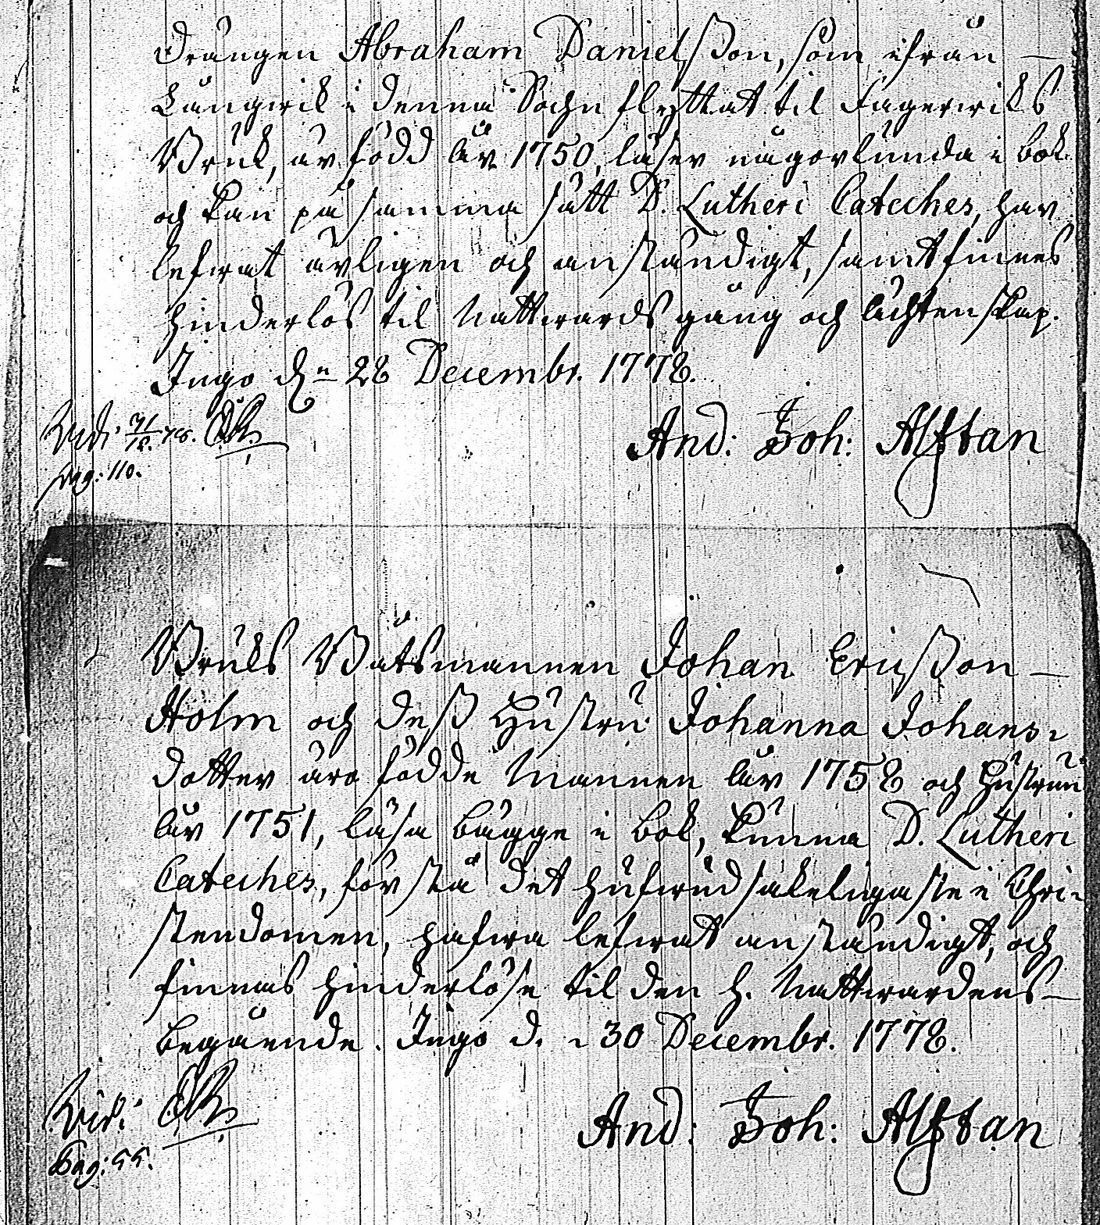 Drängen Abraham Danielsson, som ifrån
Långwik i denna Sochn flyttat til Fagerwiks
Bruk, är född åhr 1750, läser någorlunda i bok
och kan på samma sätt D. Lutheri Cateches, har
lefwat ärligen och anständigt, samt finnes
hinderlös til Nattwards gång och ächtenskap.
Ingo dn 28 Decembr. 1778.
And: Joh: Alftan
Vid: 31/12. 78.
pag: 110.
Bruks Båtsmannen Johan Ericsson
Holm och dess Hustru Johanna Johans-
dotter äro födde Mannen åhr 1758 och Hustrun
åhr 1751, läsa bägge i bok, kunna D. Lutheri
Cateches, förstå det hufwudsakeligaste i Chri-
stendomen, hafwa lefwat anständigt, och
finnas hinderlöse til den H. Nattwardens
begående. Ingo d. 30 Decembr. 1778.
And: Joh: Alftan
Vid:
Pag: 55.